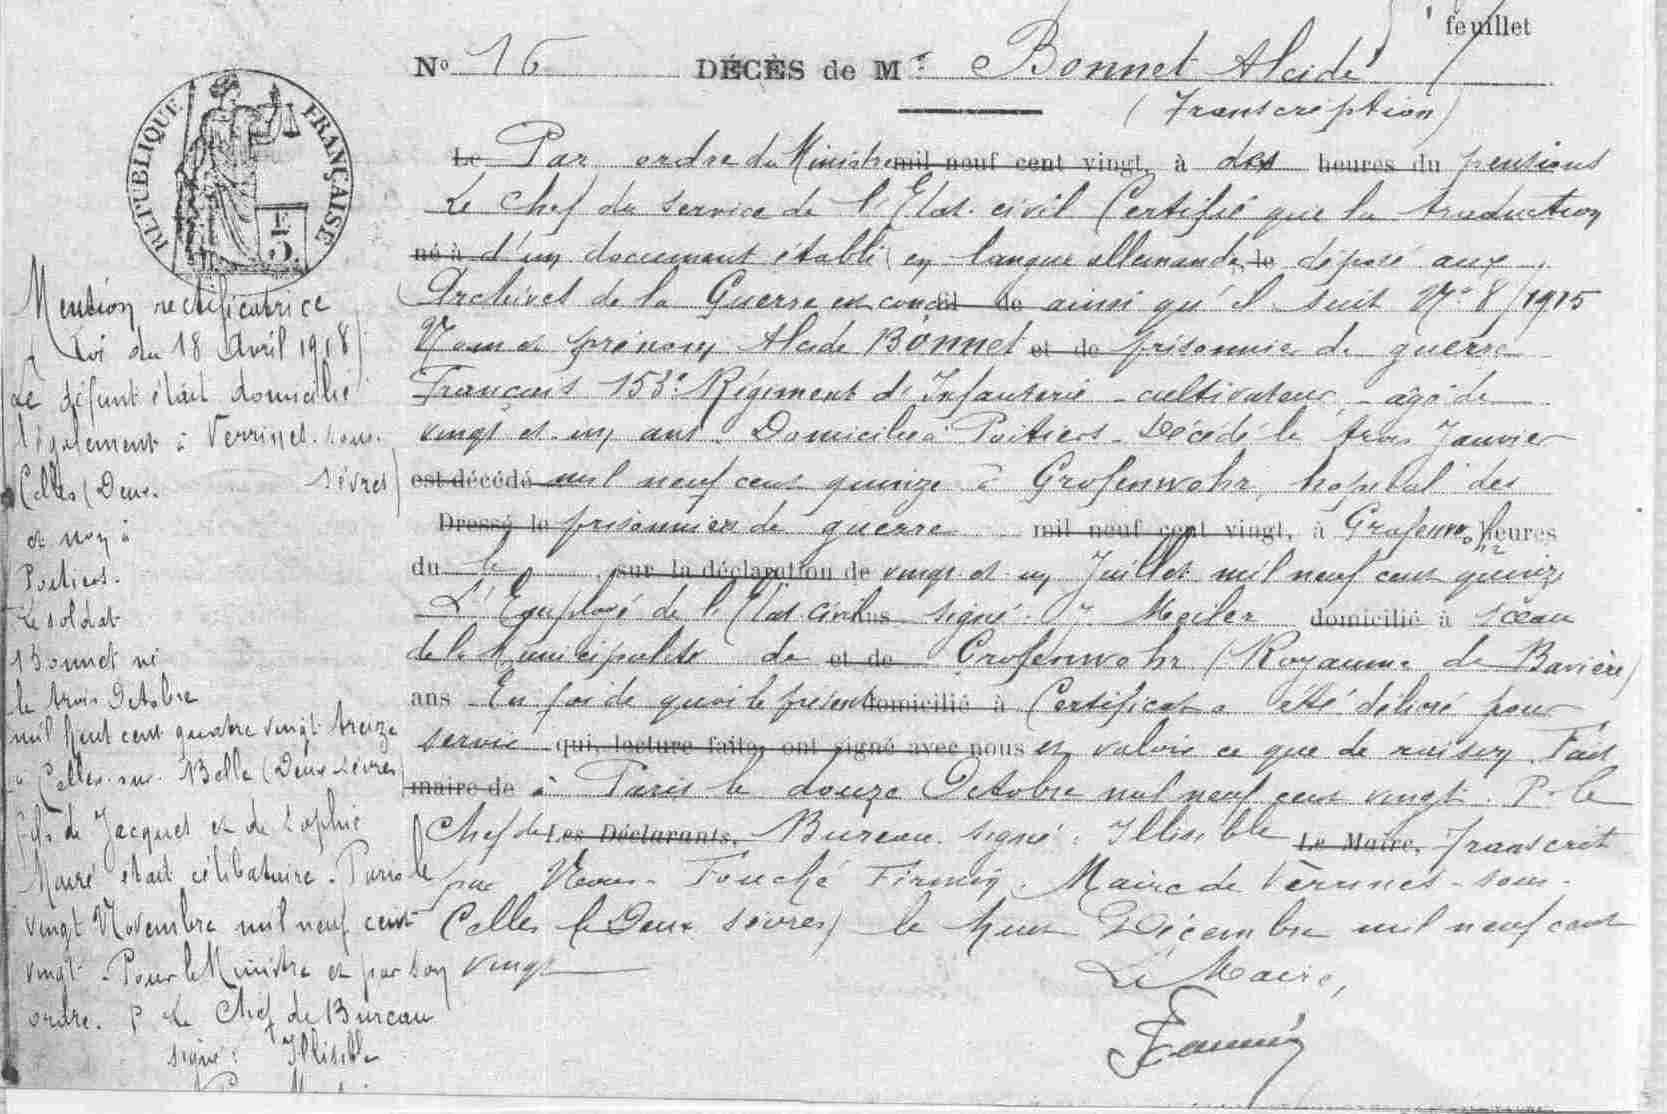 feuillet
No 16 DÉCÈS de Mr Bonnet Alcide
(Transcription)
RÉPUBLIQUE FRANÇAISE
Le Par ordre du Ministre mil neuf cent vingt, à des heures du pensions
Le Chef du Service de l'Etat-civil Certifie que la traduction
né à d'un document établi en langue allemande, le déposé aux
Archives de la Guerre est conçu fil de ainsi qu'il suit No 8/1915
Nom et prénom Alcide Bonnet et de prisonnier de guerre
Français 153e Régiment d'Infanterie - cultivateur - agé de
vingt et un ans. Domicilié à Poitiers - Décédé le trois Janvier
est décédé mil neuf cent quinze à Grafenwohr, hopital des
Dressé le prisonniers de guerre mil neuf cent vingt, à Grafenwohr heures
du le sur la déclaration de vingt et un Juillet mil neuf cent quinze
L'Employé de l'Etat-civil signé: J. Meiler domicilié à sceau
de la Municipalité de et de Grafenwohr (Royaume de Bavière)
ans En foi de quoi le présent domicilié à Certificat a été délivré pour
servir qui, lecture faite, ont signé avec nous et valoir ce que de raison. Fait
maire de à Paris le douze Octobre mil neuf cent vingt. P. le
Chef de Les Déclarants, Bureau signé: Illisible Le Maire, Transcrit
par Nous - Fouché Firmin, Maire de Verrines-sous-
Celles (Deux Sèvres) le huit Décembre mil neuf cent
vingt
Le Maire,
Mention rectificatrice
(Loi du 18 Avril 1918)
Le défunt était domicilié
légalement à Verrines-sous-
Celles (Deux-Sèvres)
et non à
Poitiers.
Le soldat
Bonnet né
le trois Octobre
mil huit cent quatre vingt treize
à Celles-sur-Belle (Deux-Sèvres)
fils de Jacques et de Sophie
Mairé était célibataire. Paris le
vingt Novembre mil neuf cent
vingt - Pour le Ministre et par son
ordre. P. Le Chef de Bureau
signé: Illisible